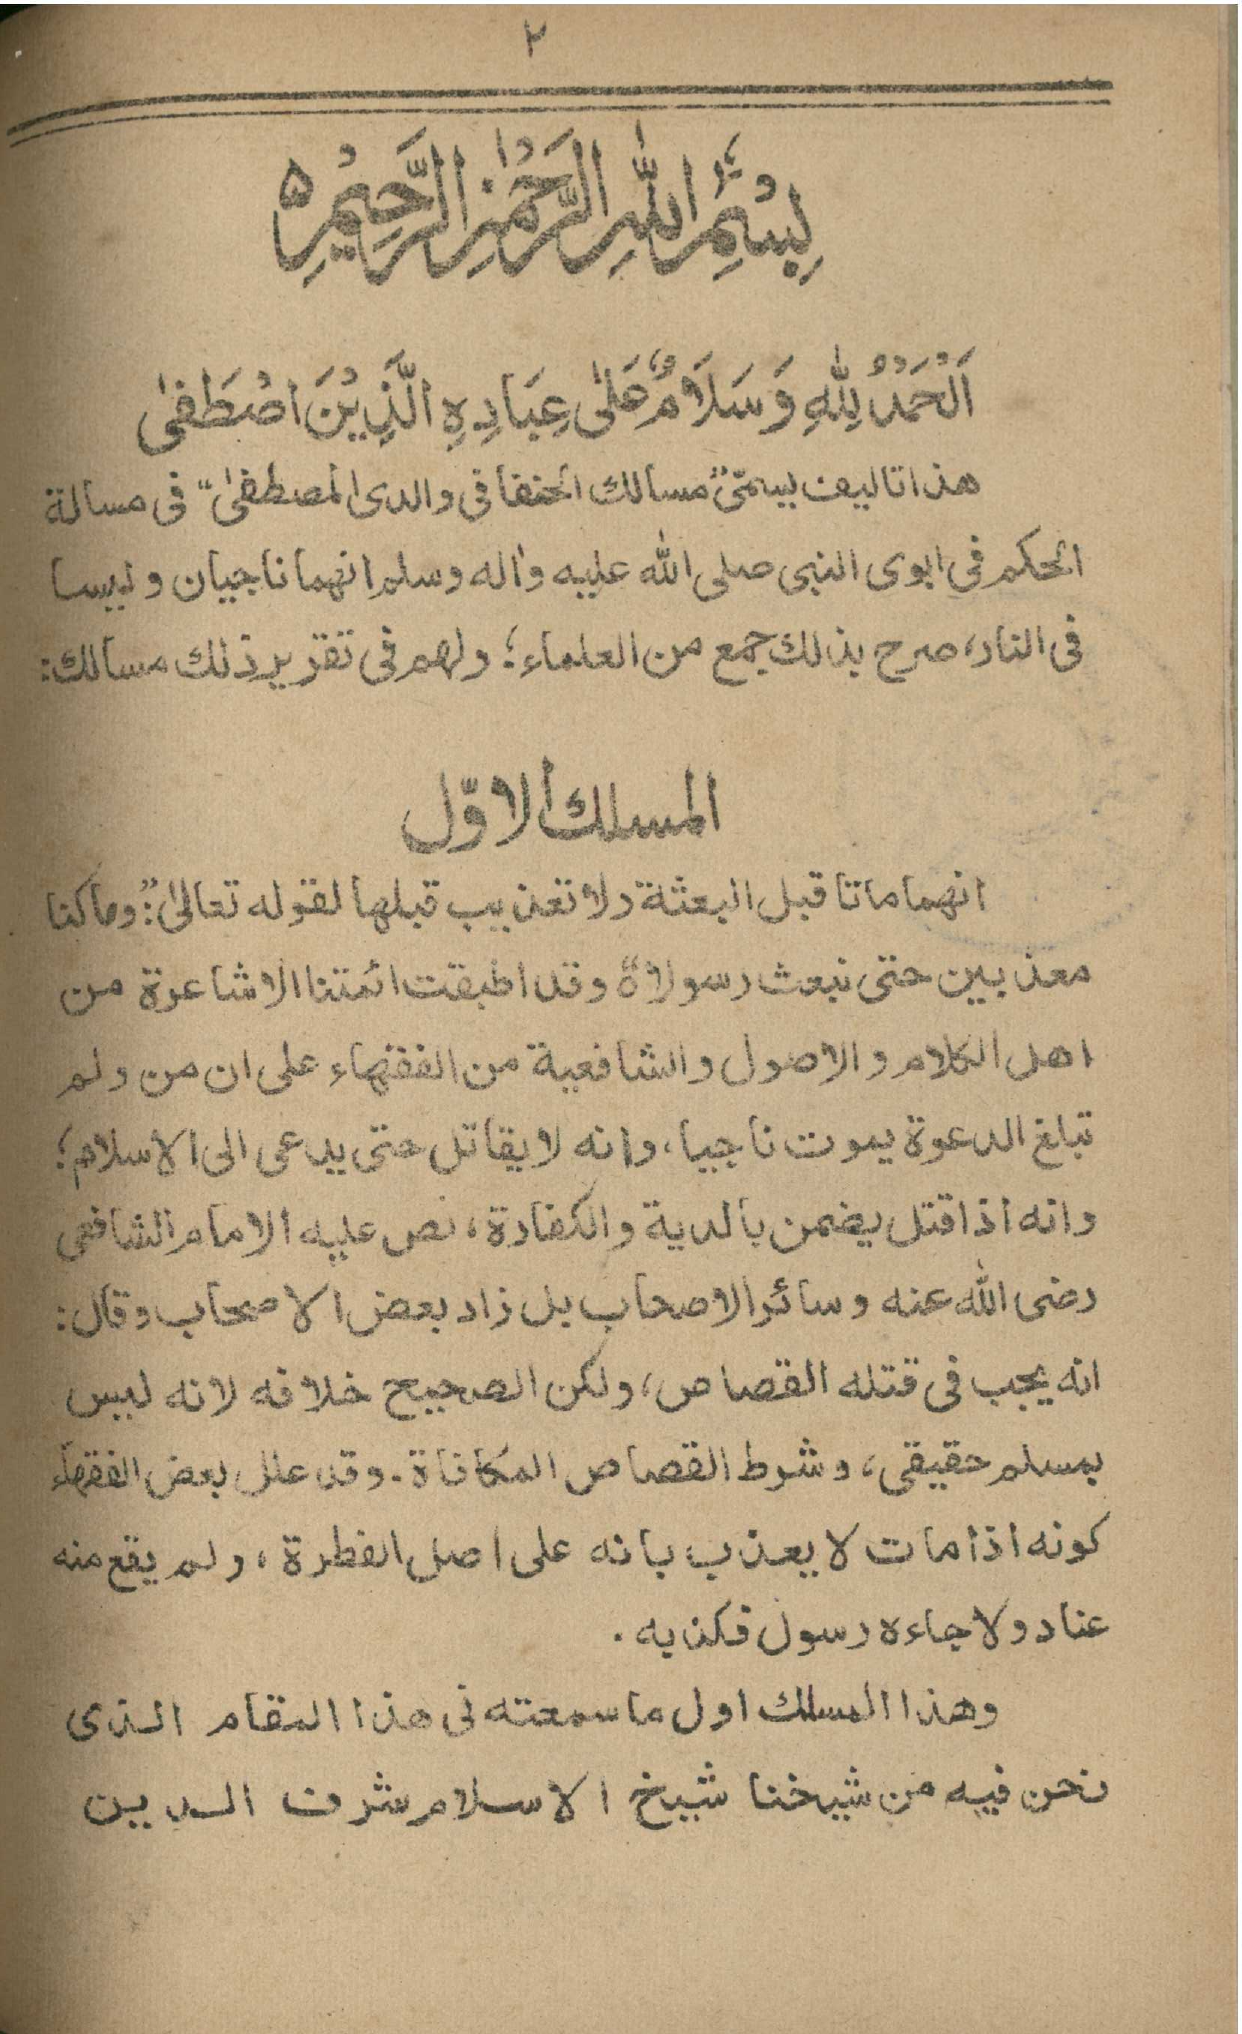 ٢
بِسْمِ اللهِ الرَّحْمٰنِ الرَّحِيْمِ ٥
اَلْحَمْدُ لِلّٰهِ وَسَلَامٌ عَلٰى عِبَادِهِ الَّذِيْنَ اصْطَفٰى
هذا تاليف يسمّى "مسالك الحنفا فى والدى المصطفىٰ" فى مسالة
الحكم فى ابوى النبى صلى الله عليه واٰله وسلم انهما ناجيان وليسا
فى النار، صرح بذلك جمع من العلماء؛ ولهم فى تقرير ذلك مسالك:
المسلك الاوّل
انهما ماتا قبل البعثة ولا تعذيب قبلها لقوله تعالىٰ: "وما كنا
معذبين حتى نبعث رسولا٥" وقد اطبقت ائمتنا الاشاعرة من
اهل الكلام والاصول والشافعية من الفقهاء على ان من ولم
تبلغ الدعوة يموت ناجيا، وانه لا يقاتل حتى يدعى الى الاسلام؛
وانه اذا قتل يضمن بالدية والكفارة، نص عليه الامام الشافعى
رضى الله عنه وسائر الاصحاب بل زاد بعض الاصحاب وقال:
انه يجب فى قتله القصاص، ولكن الصحيح خلافه لانه ليس
بمسلم حقيقى، وشرط القصاص المكافاة. وقد علل بعض الفقهاء
كونه اذا مات لا يعذب بانه على اصل الفطرة، ولم يقع منه
عناد ولا جاءه رسول فكذبه.
وهذا المسلك اول ما سمعته فى هذا المقام الذى
نحن فيه من شيخنا شيخ الاسلام شرف الدين